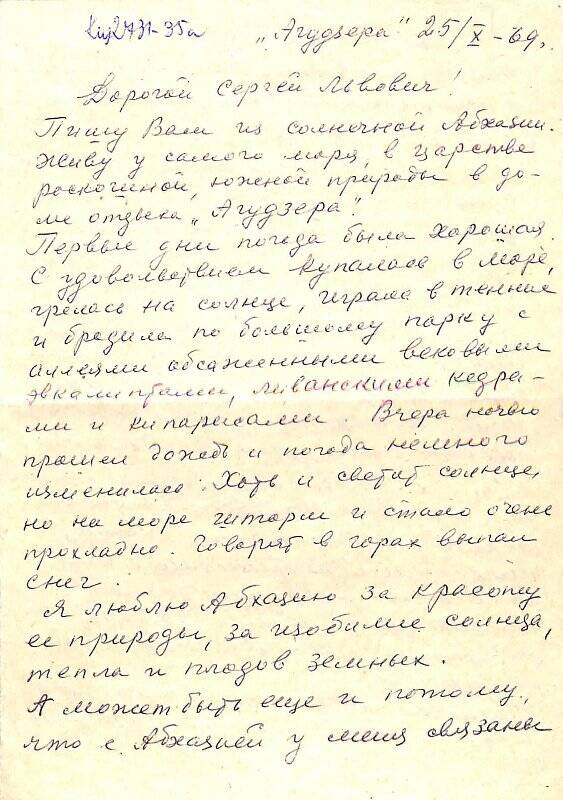 Кп 2731-35а
„Агудзера" 25/X - 69.
Дорогой Сергей Львович!
Пишу Вам из солнечной Абхазии.
Живу у самого моря, в царстве
роскошной, южной природы в до-
ме отдыха „Агудзера".
Первые дни погода была хорошая.
С удовольствием купалась в море,
грелась на солнце, играла в теннис
и бродила по большому парку с
аллеями обсаженными вековыми
эвкалиптами, ливанскими кедра-
ми и кипарисами. Вчера ночью
прошел дождь и погода немного
изменилась. Хоть и светит солнце,
но на море шторм и стало очень
прохладно. Говорят в горах выпал
снег.
Я люблю Абхазию за красоту
ее природы, за изобилие солнца,
тепла и плодов земных.
А может быть еще и потому,
что с Абхазией у меня связаны